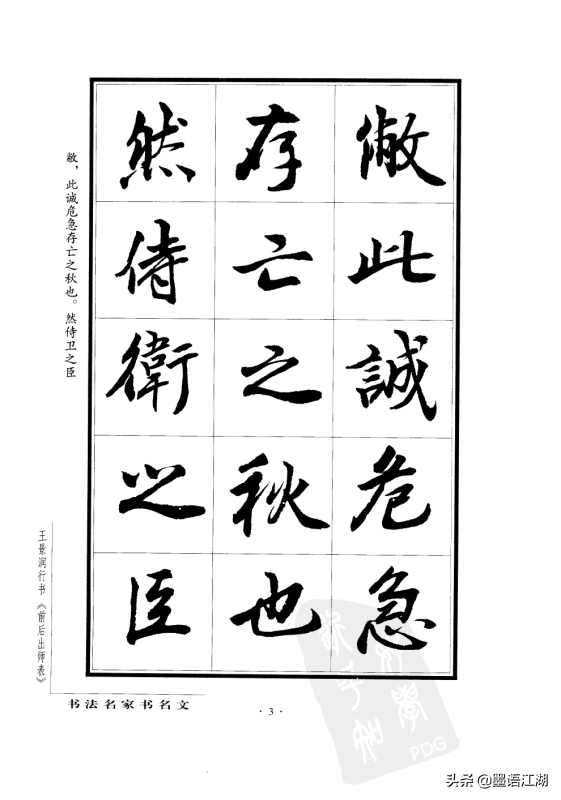 儆此誠危急
存亡之秋也
然侍衛之臣
敝，此诚危急存亡之秋也。然侍卫之臣
王景润行书《前后出师表》
书法名家书名文
·3·
PDG
头条@墨语江湖